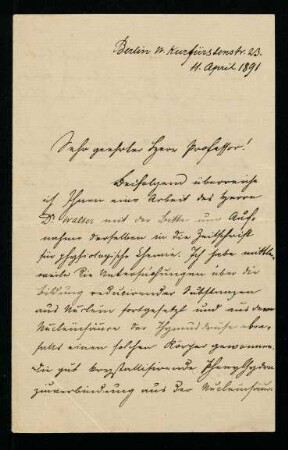 Berlin W. Kurfürstenstr. 23.
4. April 1891
Sehr geehrter Herr Professor!
Beifolgend überreiche
ich Ihnen eine Arbeit des Herrn
Dr. Walter mit der Bitte um Auf-
nahme derselben in die Zeitschrift
für physiologische Chemie. Ich habe mittler-
weile die Untersuchungen über die
Bildung reducirender Substanzen
aus Nuclein fortgesetzt und aus der
Nucleinsäure der Thymusdrüse eben-
falls einen solchen Körper gewonnen.
Die gut krystallisirende Phenylhydra-
zinverbindung aus der Nucleinsäure